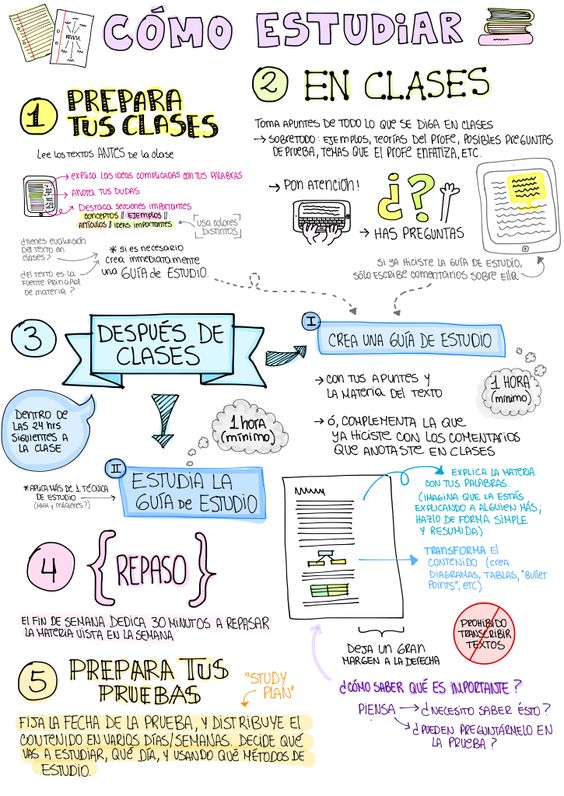 CÓMO ESTUDIAR
1 PREPARA
TUS CLASES
Lee los textos ANTES de la clase
→ explica las ideas complicadas con tus palabras
→ Anota tus dudas
→ Destaca secciones importantes
conceptos // ejemplos //
artículos // ideas importantes
usa colores
distintos
¿tienes evaluación
del texto en
clases?
¿el texto es la
fuente principal
de materia?
* si es necesario
crea inmediatamente
una GUÍA de ESTUDIO
2 EN CLASES
Toma apuntes de TODO lo que se diga en clases
→ sobretodo: ejemplos, teorías del profe, posibles preguntas
de prueba, temas que el profe enfatiza, etc.
→ Pon atención!
¿?
→ Has preguntas
Si ya hiciste la guía de estudio,
sólo escribe comentarios sobre ella
3 DESPUÉS DE
CLASES
Dentro de
las 24 hrs
siguientes a
la clase
I
CREA UNA GUÍA DE ESTUDIO
1 HORA
(mínimo)
→ con tus apuntes y
la materia del texto
→ ó, complementa la que
ya hiciste con los comentarios
que anotaste en clases
1 hora
(mínimo)
II
ESTUDIA LA
GUÍA de ESTUDIO
* Aplica más de 1 técnica
de estudio
Explica la materia
con tus palabras.
(imagina que la estás
explicando a alguien más,
hazlo de forma simple
y resumida)
Transforma el
contenido (crea
diagramas, tablas, "Bullet
Points", etc)
Deja un gran
margen a la derecha
PROHIBIDO
TRANSCRIBIR
TEXTOS
4 {REPASO}
El fin de semana dedica 30 minutos a repasar
la materia vista en la semana
5 PREPARA TUS
PRUEBAS
"STUDY
PLAN"
Fija la fecha de la prueba, y distribuye el
contenido en varios días/semanas. Decide qué
vas a estudiar, qué día, y usando qué métodos de
estudio.
¿Cómo saber qué es importante?
Piensa → ¿Necesito saber ésto?
→ ¿Pueden preguntármelo en
la prueba?